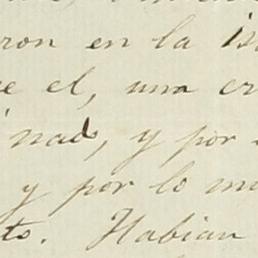 ron en la is
e el, una cr
nas, y por
y por lo m
to. Habian